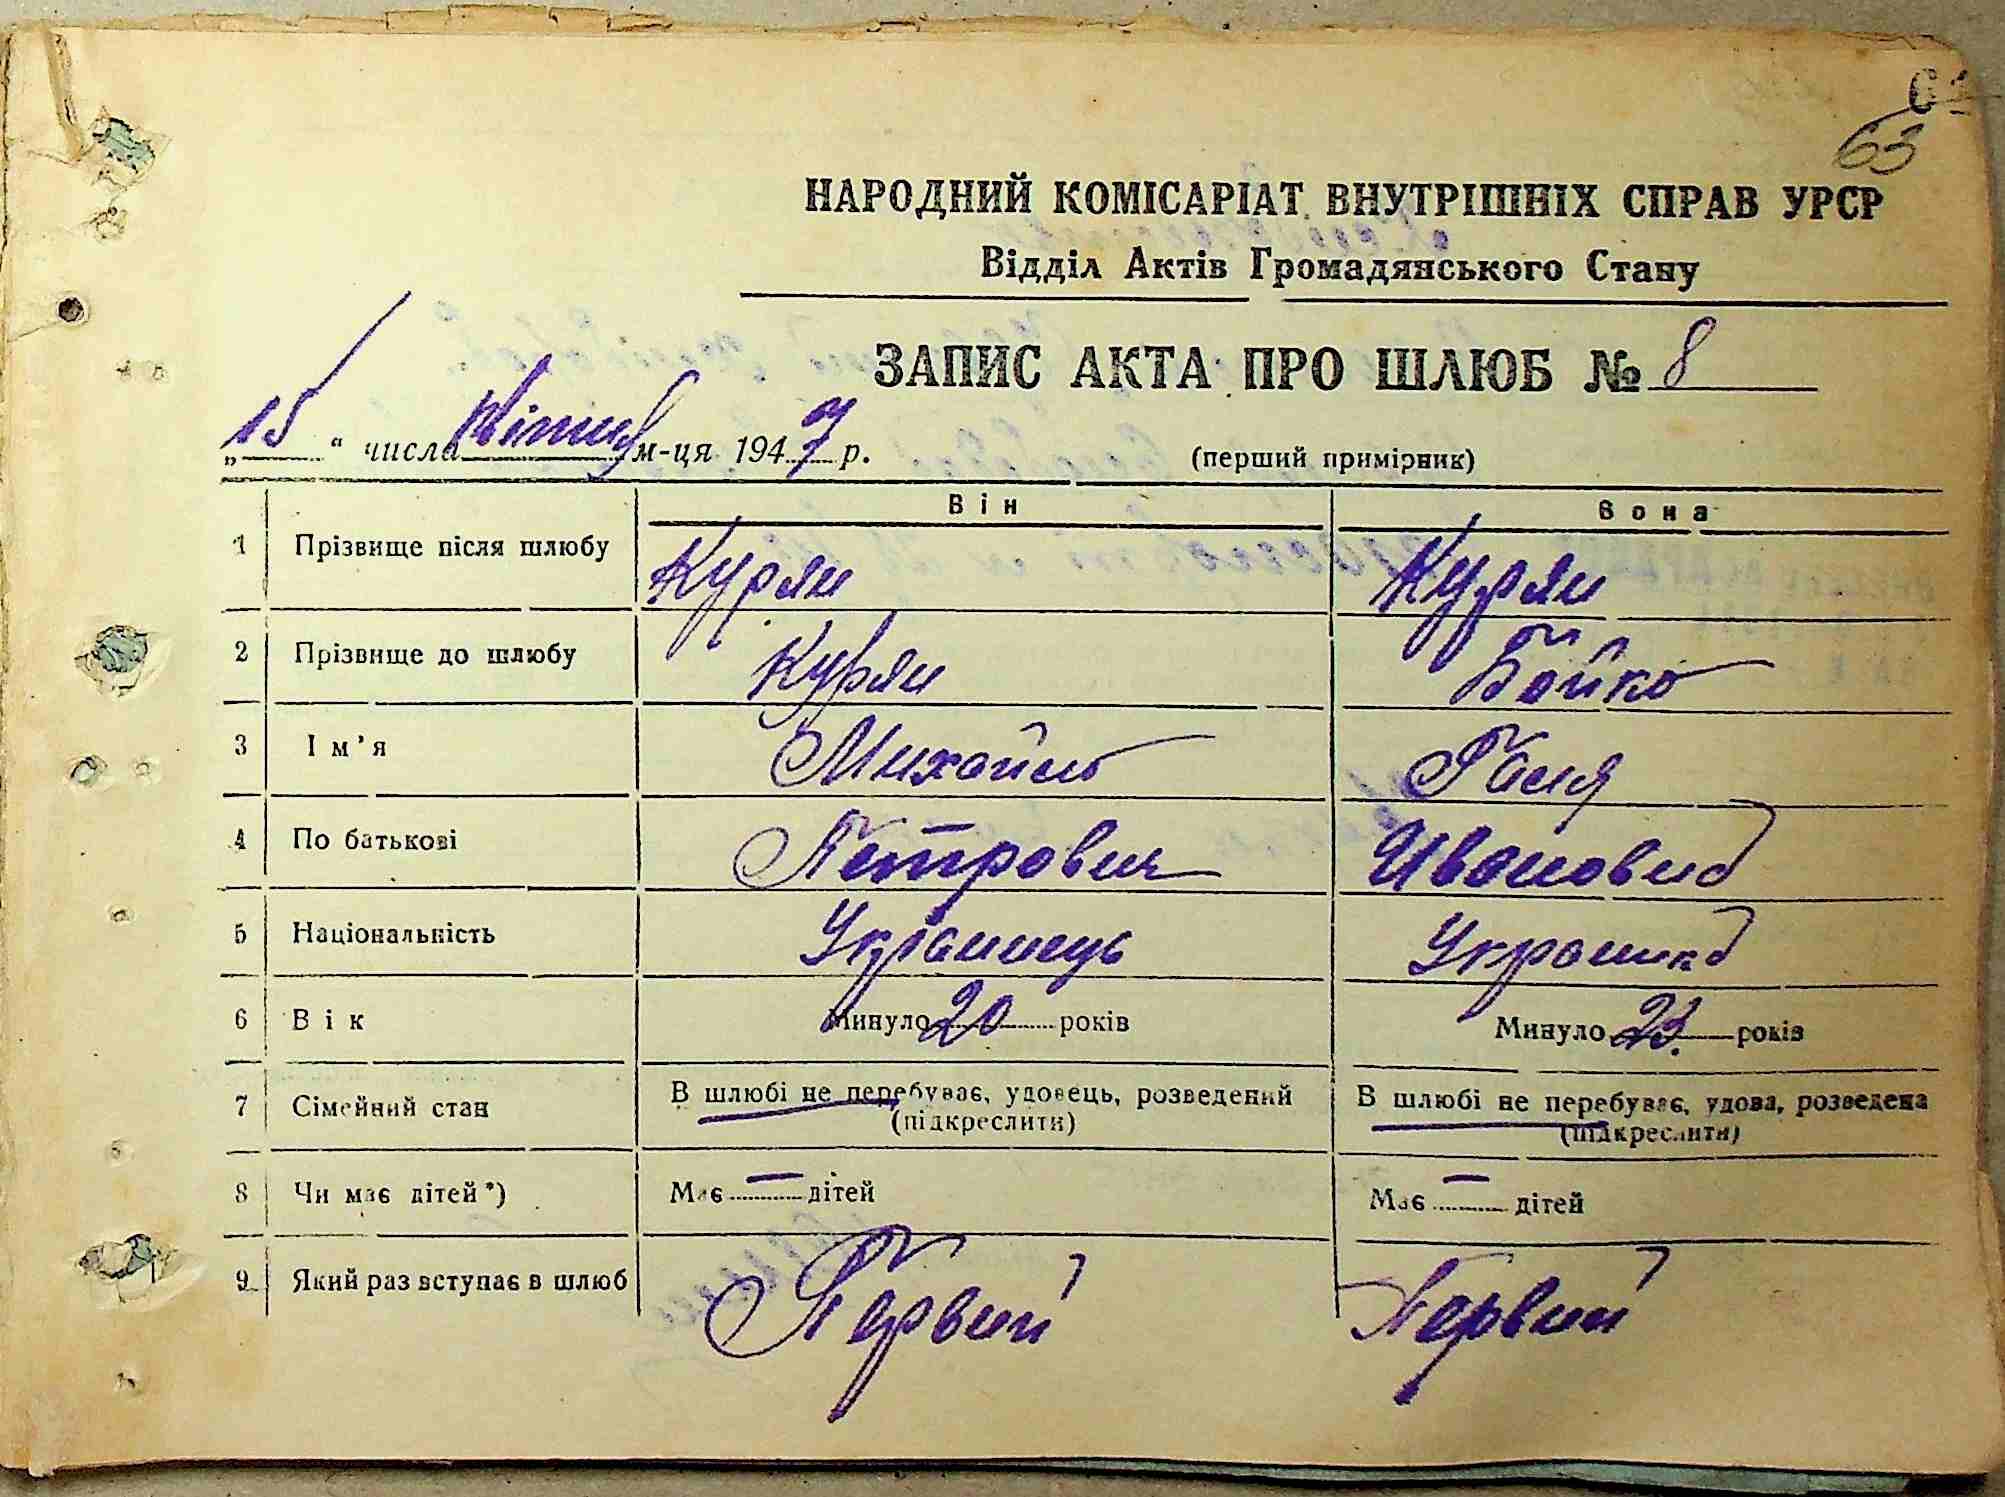 63
НАРОДНИЙ КОМІСАРІАТ ВНУТРІШНІХ СПРАВ УРСР
Відділ Актів Громадянського Стану
ЗАПИС АКТА ПРО ШЛЮБ № 8
„15“ числа квітня м-ця 1947 р. (перший примірник)
Він Вона
1 Прізвище після шлюбу Курян Курян
2 Прізвище до шлюбу Курян Бойко
3 Ім'я Михайло Ганя
4 По батькові Петрович Ивановна
5 Національність Українець Українка
6 Вік Минуло 20 років Минуло 23 років
7 Сімейний стан В шлюбі не перебуває, удовець, розведений В шлюбі не перебуває, удова, розведена
(підкреслити) (підкреслити)
8 Чи має дітей*) Має — дітей Має — дітей
9 Який раз вступає в шлюб Первий Первий